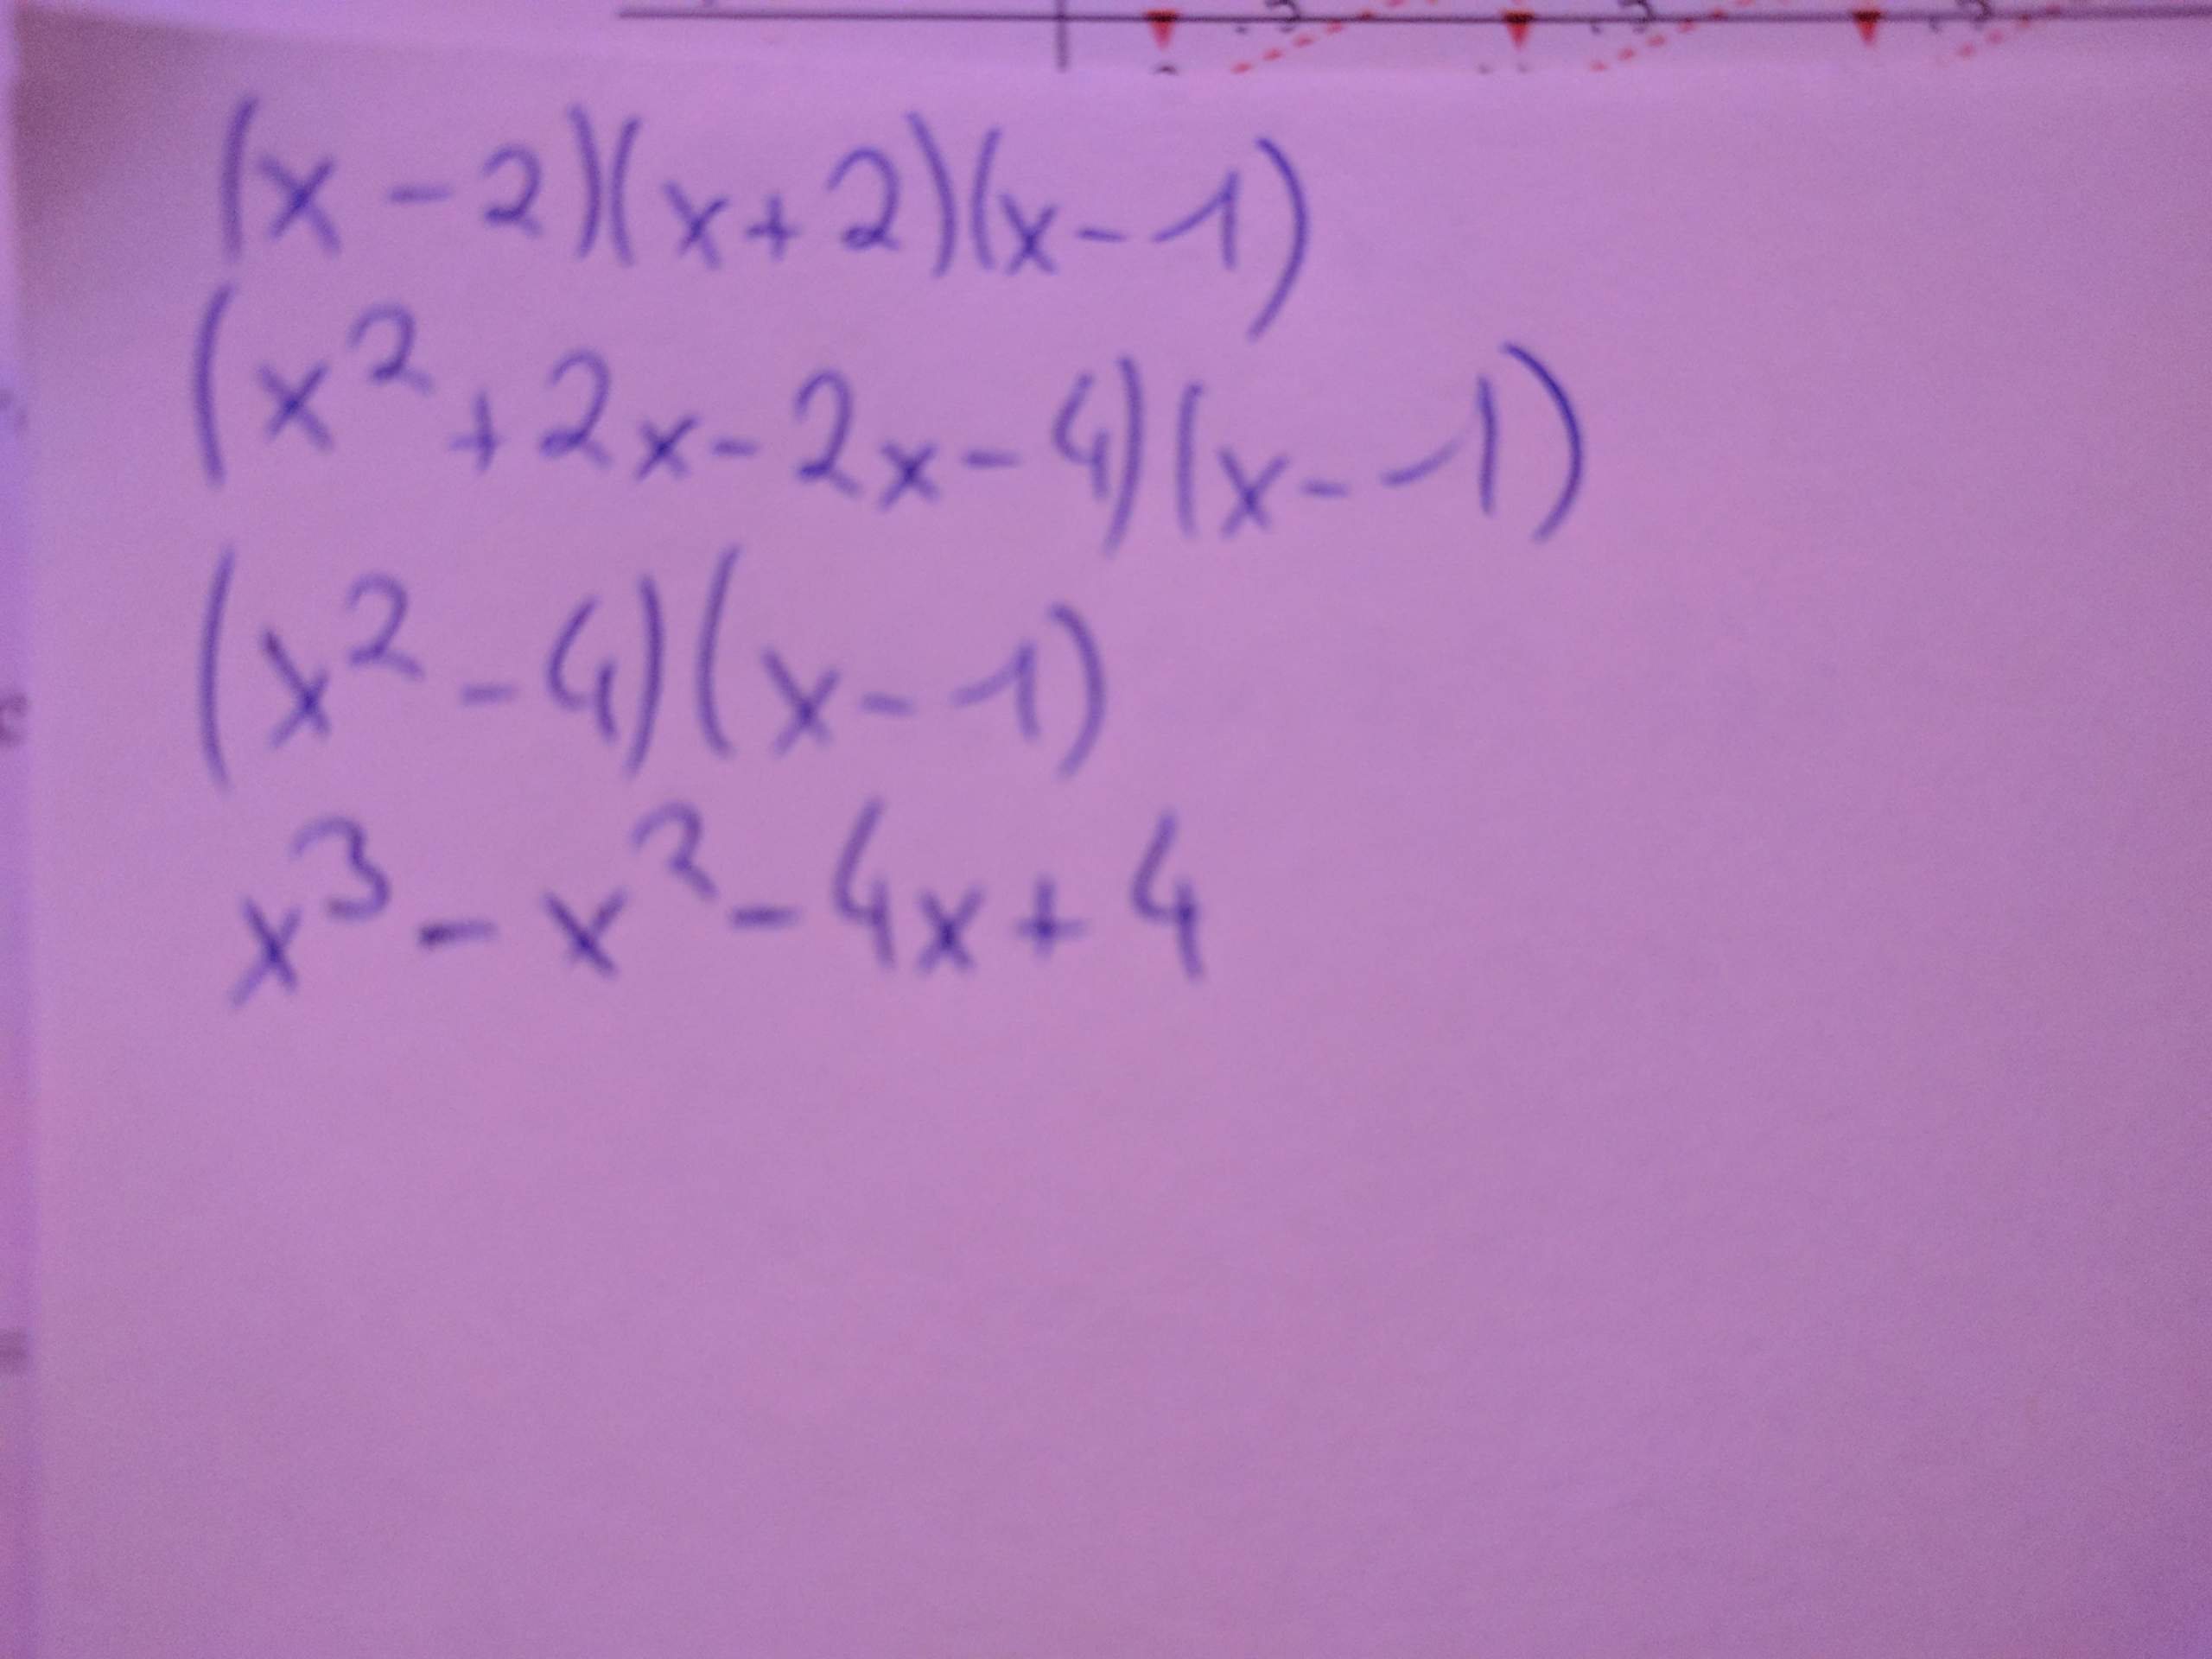 (x - 2)(x + 2)(x - 1)
(x² + 2x - 2x - 4)(x - 1)
(x² - 4)(x - 1)
x³ - x² - 4x + 4